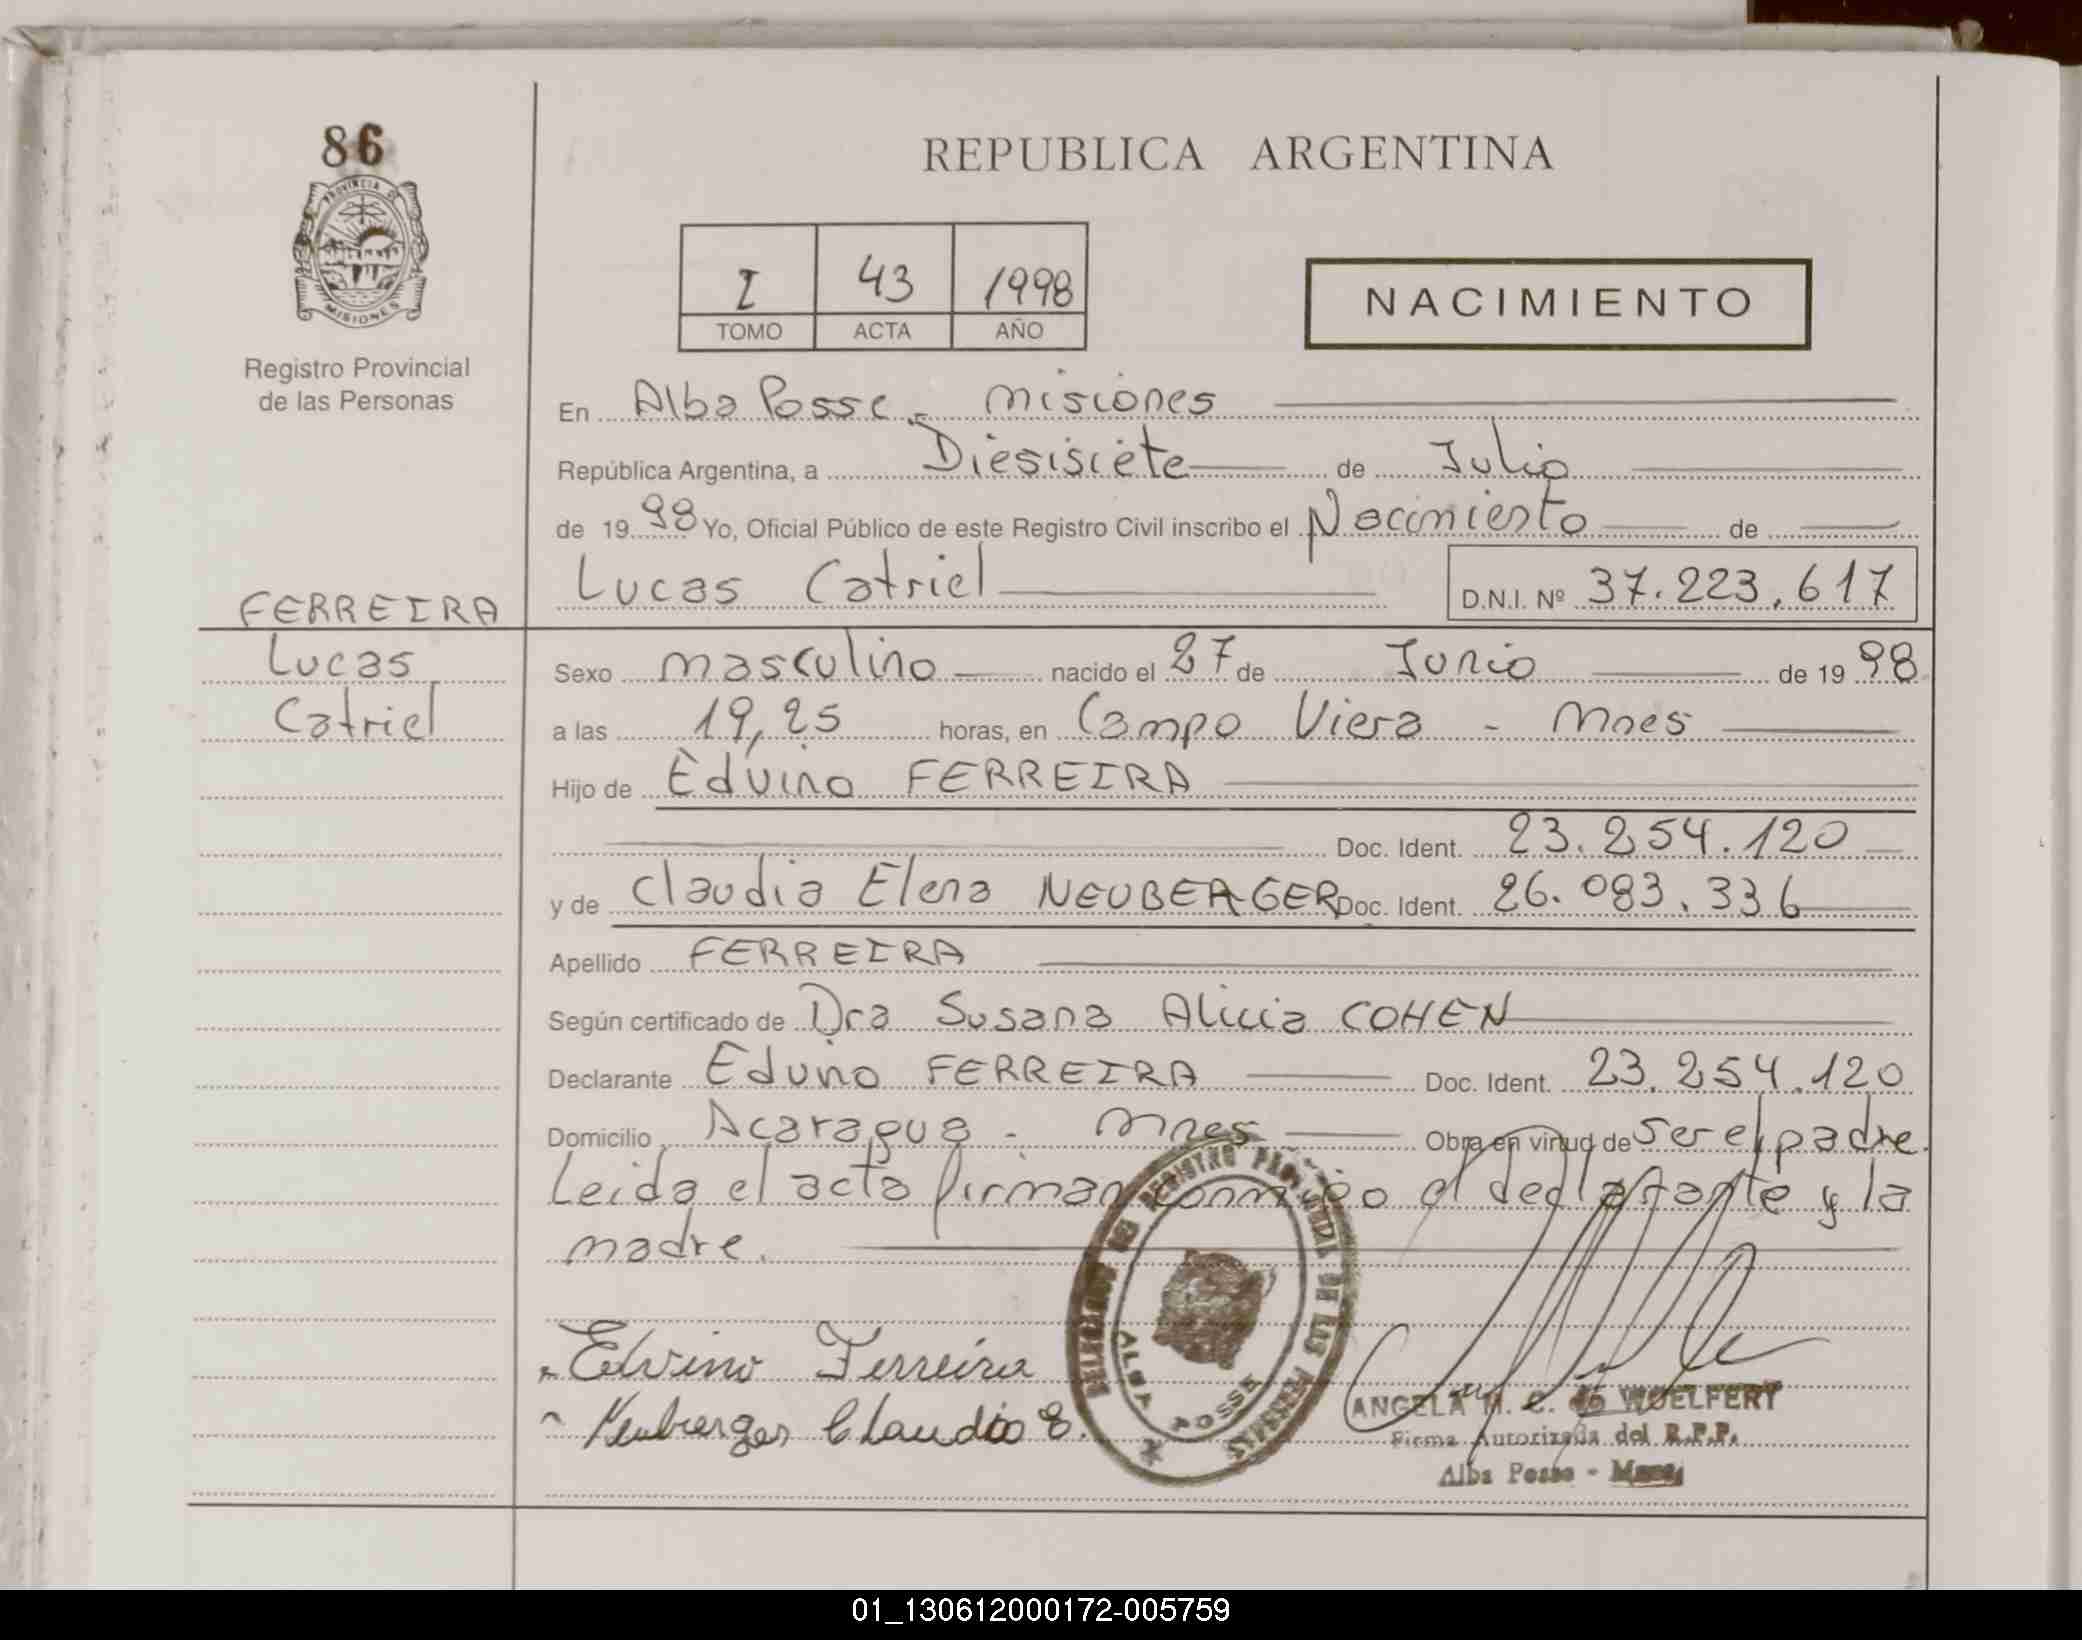 86
PROVINCIA DE
MISIONES
Registro Provincial
de las Personas
REPUBLICA ARGENTINA
I 43 1998
TOMO ACTA AÑO
NACIMIENTO
En Alba Posse - Misiones
República Argentina, a Diesisiete de Julio
de 19 98 Yo, Oficial Público de este Registro Civil inscribo el Nacimiento de
Lucas Catriel D.N.I. Nº 37.223.617
FERREIRA
Lucas
Catriel
Sexo masculino nacido el 27 de Junio de 19 98
a las 19,25 horas, en Campo Viera - Mnes
Hijo de Edvino FERREIRA
Doc. Ident. 23.254.120
y de Claudia Elena NEUBERGER Doc. Ident. 26.083.336
Apellido FERREIRA
Según certificado de Dra Susana Alicia COHEN
Declarante Edvino FERREIRA Doc. Ident. 23.254.120
Domicilio Acaragua - Mnes Obra en virtud de ser el padre.
Leida el acta firman conmigo el declarante y la
madre.
Edvino Ferreira
Neuberger Claudia E.
DELEGACION DEL REGISTRO PROVINCIAL DE LAS PERSONAS
ALBA POSSE
ANGELA M. C. de WOELFERT
Firma Autorizada del R.P.P.
Alba Posse - Mnes
01_130612000172-005759